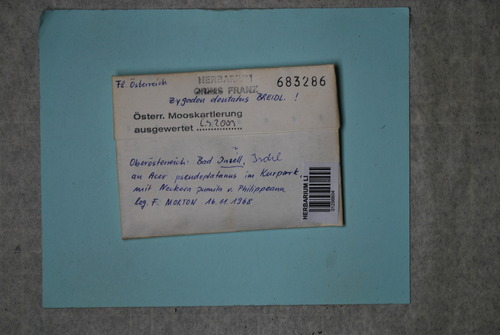 Fl. Österreich
HERBARIUM
GRIMS FRANZ
683286
Zygodon dentatus BREIDL. !
Österr. Mooskartierung
ausgewertet
Oberösterreich: Bad Inzell, Ischl
an Acer pseudoplatanus im Kurpark
mit Neckera pumila v. Philippeana
leg. F. MORTON 16.11.1968
HERBARIUM LI